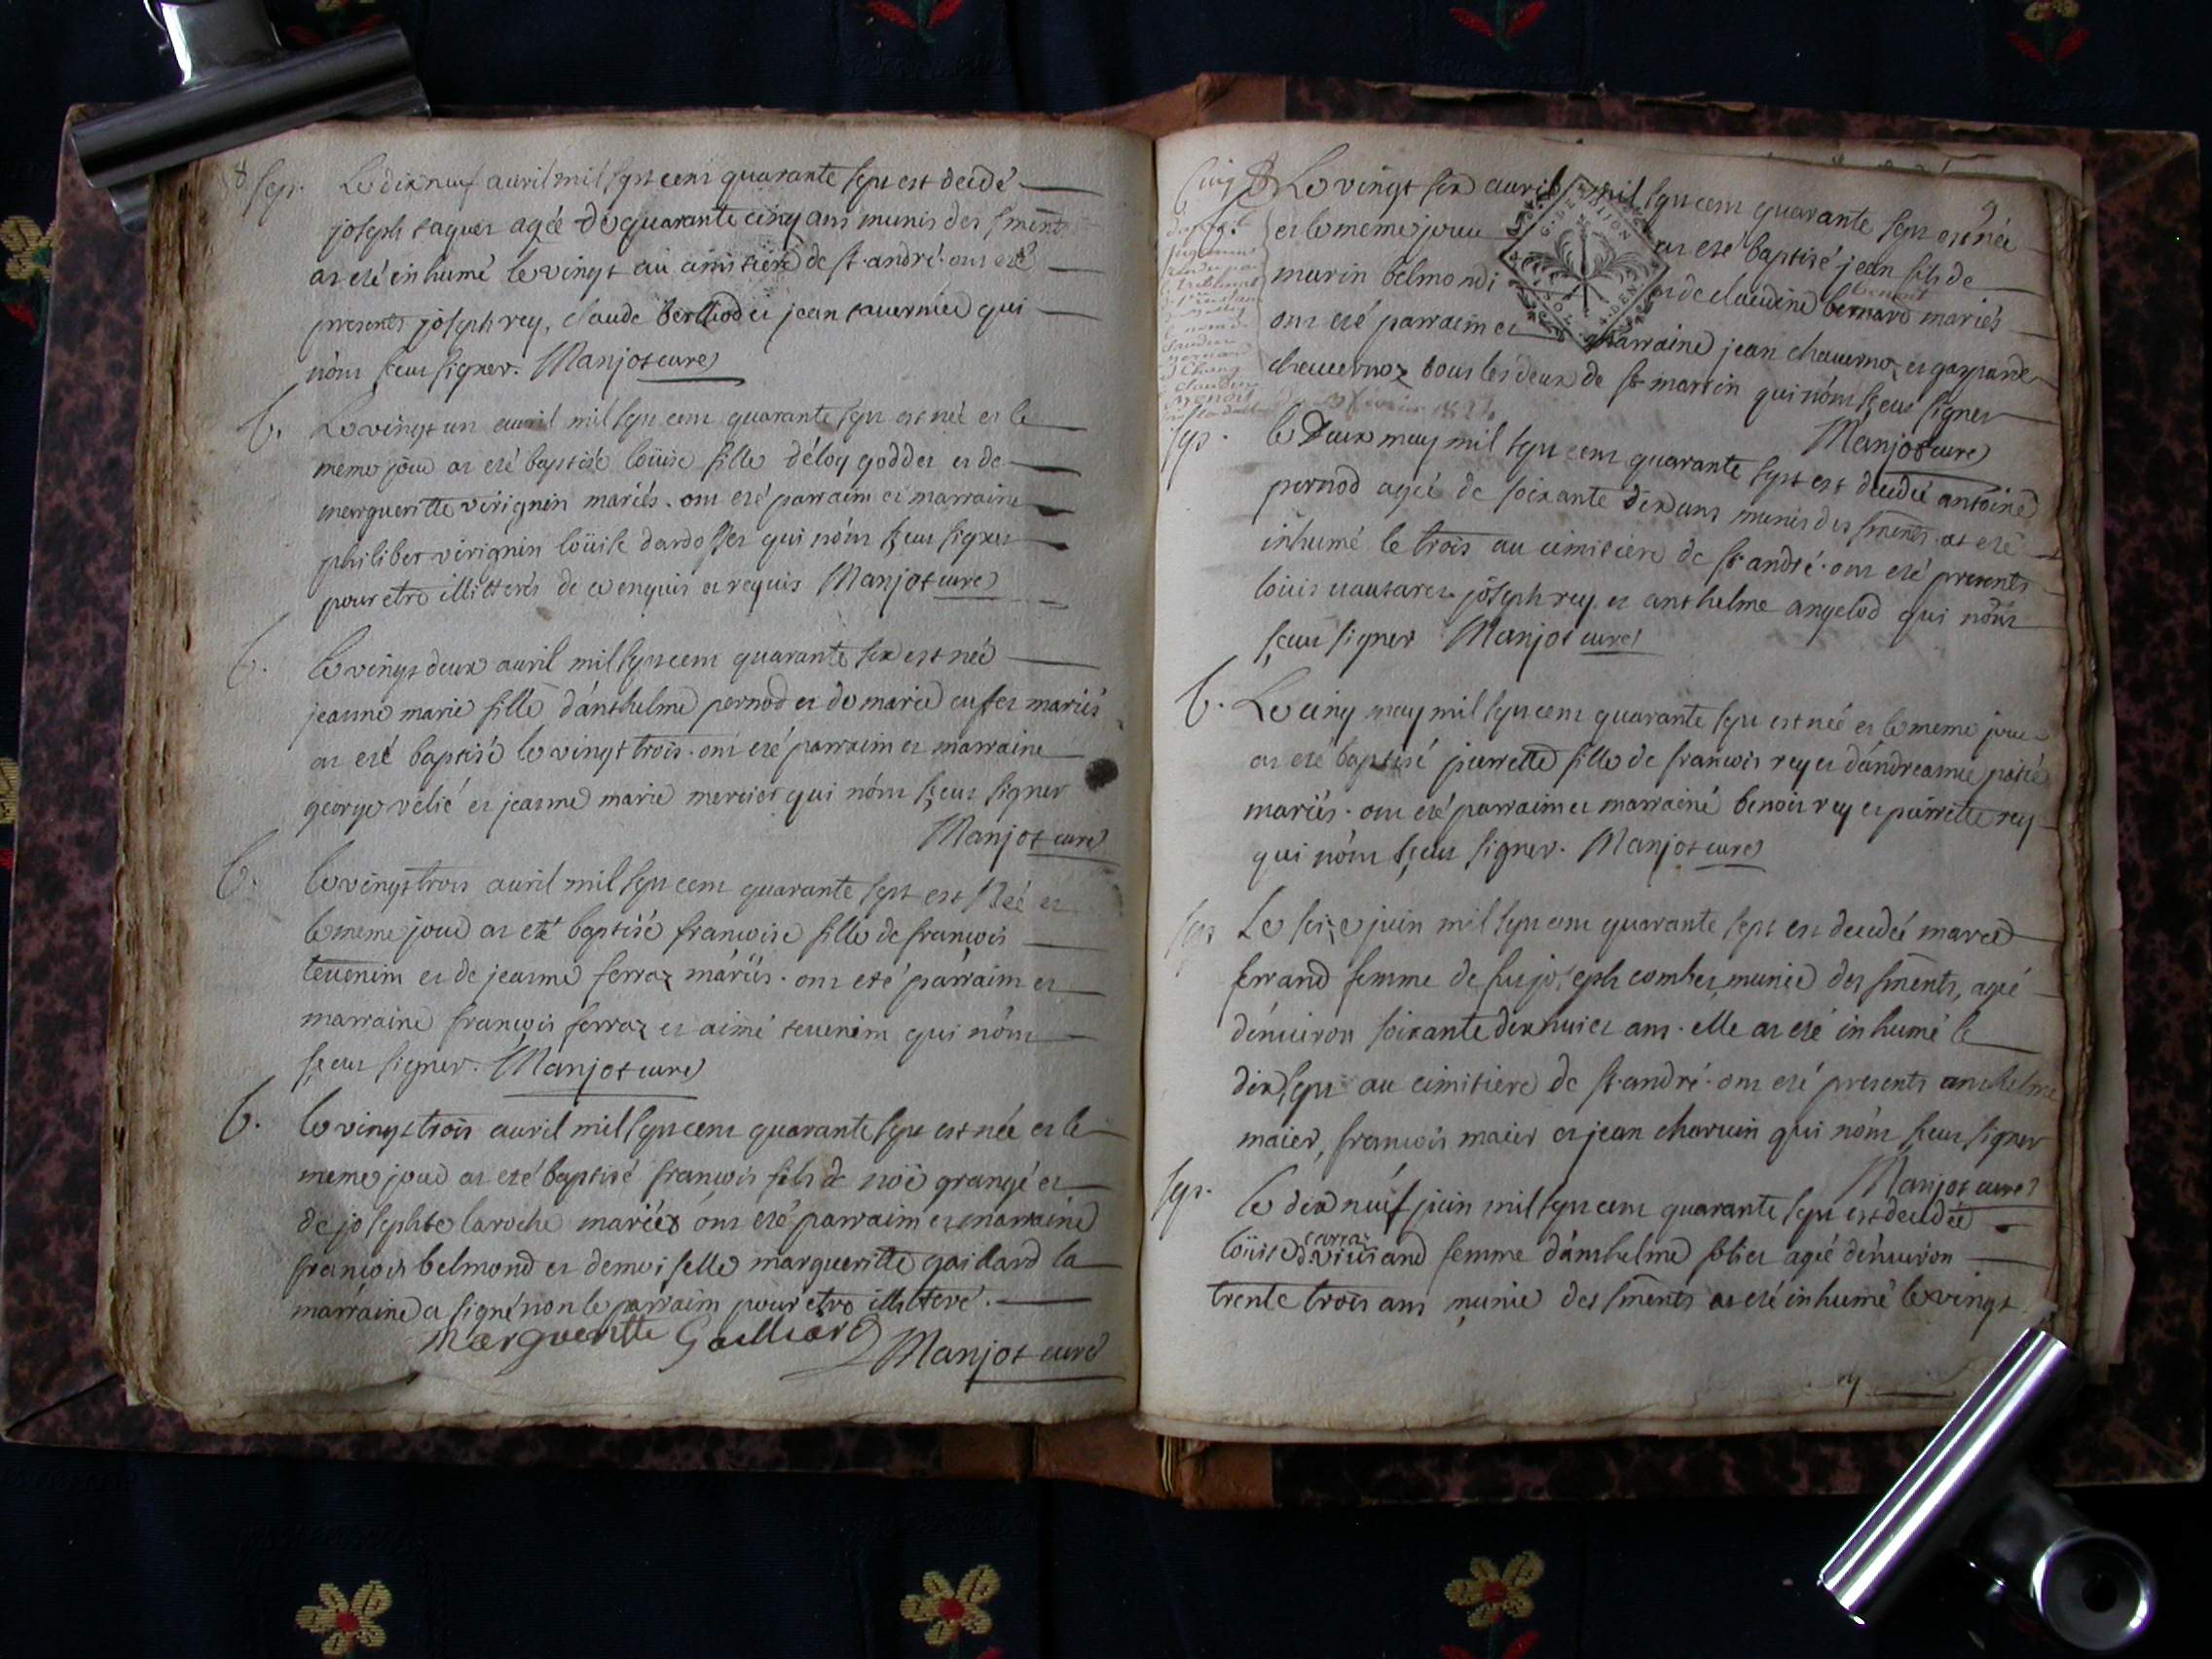 8
sep. Le dix neuf auril mil sept cent quarante sept est decedé
joseph taquet agée de quarante cinq ans munis des sments
at eté inhumé le vingt au cimitiere de st. andré. ont eté
presents joseph rey, claude berthod et jean tauernier qui
nònt sceut signer. Manjot curé
b. Le vingt un auril mil sept cent quarante sept est née et le
meme jour at eté baptisé loüise fille déloy goddet et de
margueritte virignin mariés. ont eté parraim et marraine
philibert virignin loüise dardosset qui nónt sceut signer
pour etre illitterés de ce enquis et requis Manjot curé
b. le vingt deux auril mil sept cent quarante six est née
jeanne marie fille dánthelme pernod et de marie cuset mariés
at eté baptisé le vingt trois. ont eté parraim et marraine
george velié et jeanne marie mercier qui nónt sceut signer
Manjot curé
b. le vingt trois auril mil sept cent quarante sept est Néé et
le meme jour at eté baptisé francoise fille de francois
teuenim et de jeanne ferraz mariés. ont eté parraim et
marraine francois ferraz et aimé teuenim qui nónt
sceut signer. Manjot curé
b. le vingt trois auril mil sept cent quarante sept est née et le
meme jour at eté baptisé francois fils de noë grangé et
de josephte laroche mariés ont eté parraim et marraine
francois belmond et demoiselle margueritte gaillard la
marraine a signé non le parraim pour etre illiteré.
Margueritte Gailliard Manjot curé
9
b Le vingt six auril mil sept cent quarante sept est née
et le meme jour at eté baptisé jean fils de
benoit
marin belmond et de claudine bernard mariés
ont eté parraim et marraine jean chauernoz et gaspande
chauernoz tous les deux de st martin qui nónt sceut signer
Manjot curé
sep. le Deux may mil sept cent quarante sept est decedé antoine
pernod agée de soixante dix ans munis des sments. at eté
inhumé le trois au cimitiere de st andré. ont eté presents
loüis uautaret joseph rey et anthelme angelod qui nónt
sceut signer Manjot curé
b. Le cinq may mil sept cent quarante sept est née et le meme jour
at eté baptisé pierrette fille de francois rey et dándreanne
mariés. ont eté parraim et marrainé benoit rey et pierrette rey
qui nónt sceut signer. Manjot curé
sep. Le seize juin mil sept cent quarante sept est decedée marie
ferrand femme de fu joseph combet, munie des sments, agée
dénuiron soixante dix huict ans. elle at eté inhumé le
dix sept au cimitiere de st. andré. ont eté presents anthelme
maier, francois maier et jean charuin qui nónt sceut signer
Manjot curé
sep. le dix neuf juin mil sept cent quarante sept est decedée
loüise uiuiand femme dánthelme solier agée dénuiron
trente trois ans munie des sments at eté inhumé le vingt